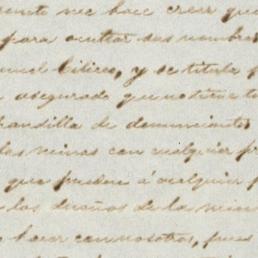 me hace creer que
para ocultar sus nombres
y se titula
asegurado que nosotros
de denunciantes
las minas con cualquier
que pueden á cualquier
los dueños de la mina
hacer con nosotros, pues